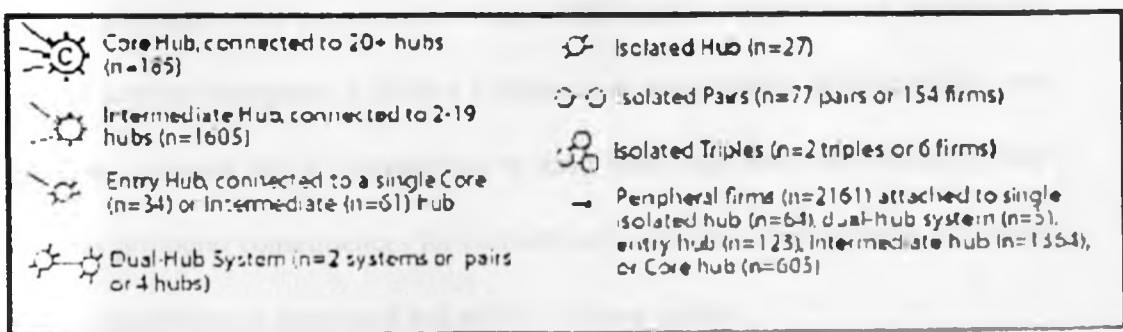 C
Core Hub, connected to 20+ hubs
(n=165)
Intermediate Hub, connected to 2-19
hubs (n=1605)
Entry Hub, connected to a single Core
(n=34) or Intermediate (n=61) hub
Dual-Hub System (n=2 systems or pairs
or 4 hubs)
Isolated Hub (n=27)
Isolated Pairs (n=77 pairs or 154 firms)
Isolated Triples (n=2 triples or 6 firms)
Peripheral firms (n=2161) attached to single
isolated hub (n=64), dual-hub system (n=5),
entry hub (n=123), Intermediate hub (n=1364),
or Core hub (n=605)